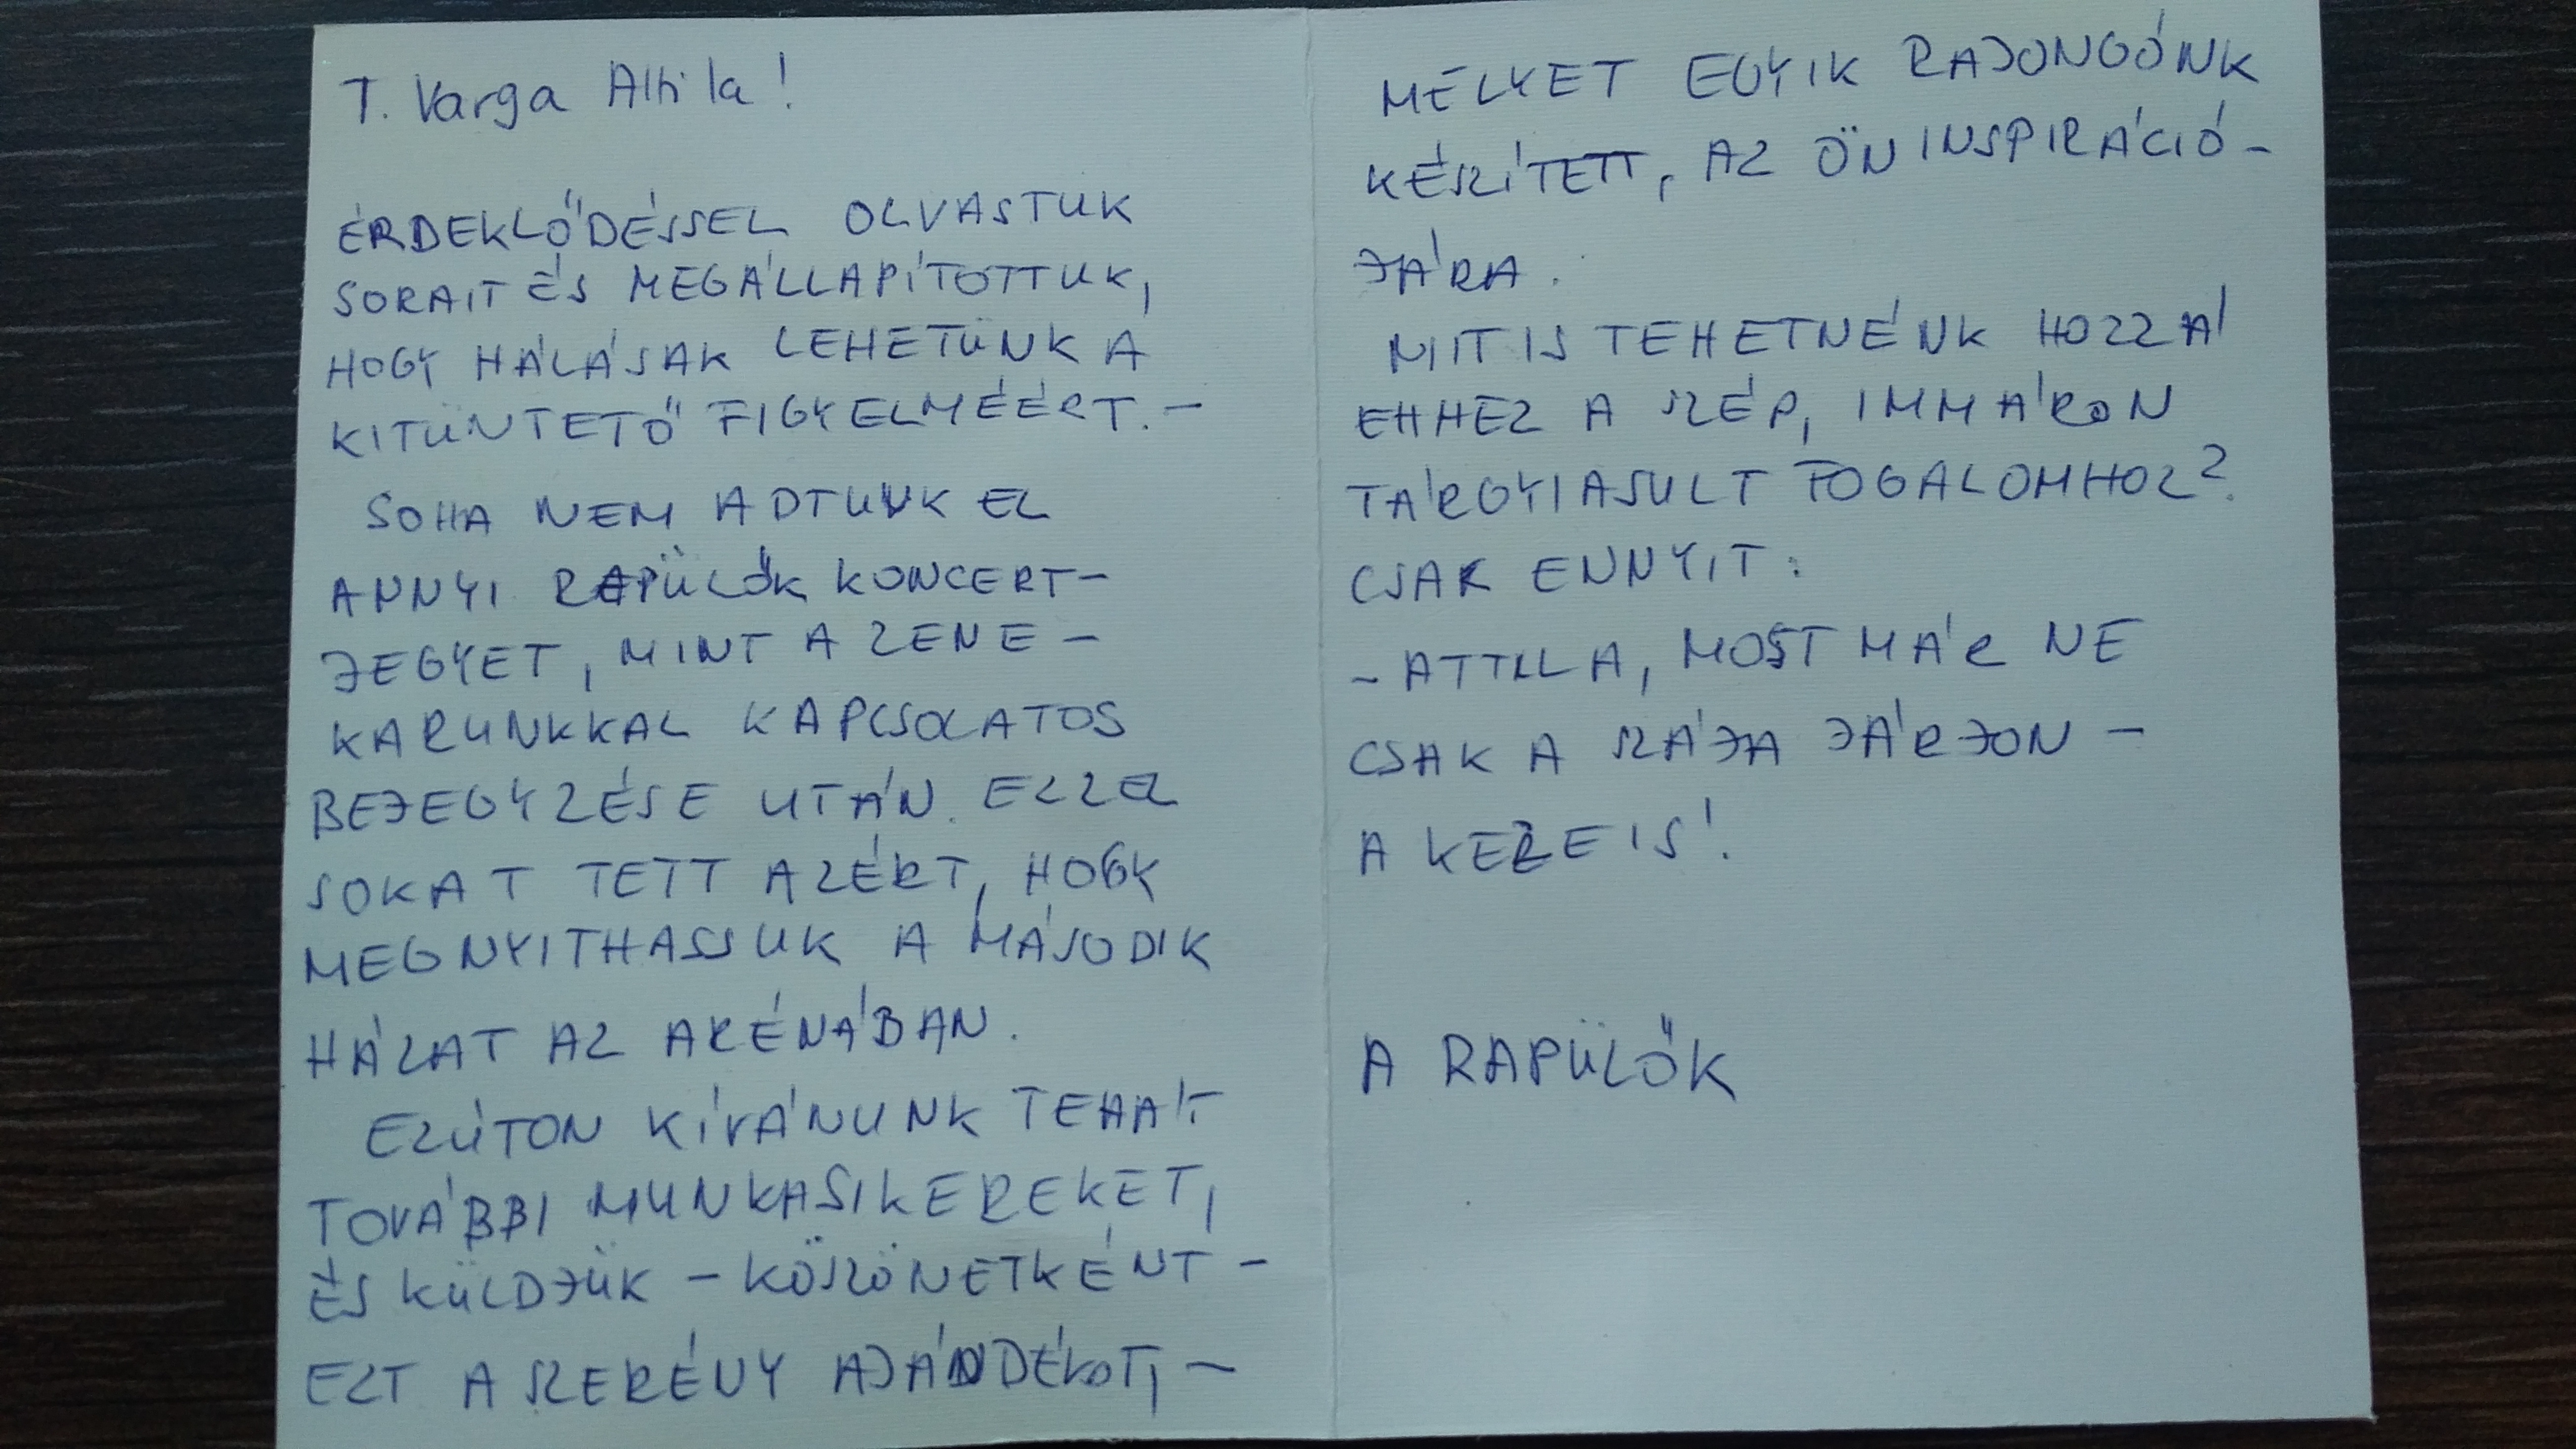 T. Varga Attila!
ÉRDEKLŐDÉSSEL OLVASTUK
SORAIT ÉS MEGÁLLAPÍTOTTUK,
HOGY HÁLÁSAK LEHETÜNK A
KITÜNTETŐ FIGYELMÉÉRT. –
SOHA NEM ADTUNK EL
ANNYI RAPÜLŐK KONCERT–
JEGYET, MINT A ZENE –
KARUNKKAL KAPCSOLATOS
BEJEGYZÉSE UTÁN. EZZEL
SOKAT TETT AZÉRT, HOGY
MEGNYITHASSUK A MÁSODIK
HÁZAT AZ ARÉNÁBAN.
EZÚTON KÍVÁNUNK TEHÁT
TOVÁBBI MUNKASIKEREKET,
ÉS KÜLDJÜK – KÖSZÖNETKÉNT –
EZT A SZERÉNY AJÁNDÉKOT, –
MELYET EGYIK RAJONGÓNK
KÉSZÍTETT, AZ ÖN INSPIRÁCIÓ –
JÁRA.
MIT IS TEHETNÉNK HOZZÁ
EHHEZ A SZÉP, IMMÁRON
TÁRGYIASULT FOGALOMHOZ?
CSAK ENNYIT:
– ATTILA, MOST MÁR NE
CSAK A SZÁJA JÁRJON –
A KEZE IS!
A RAPÜLŐK